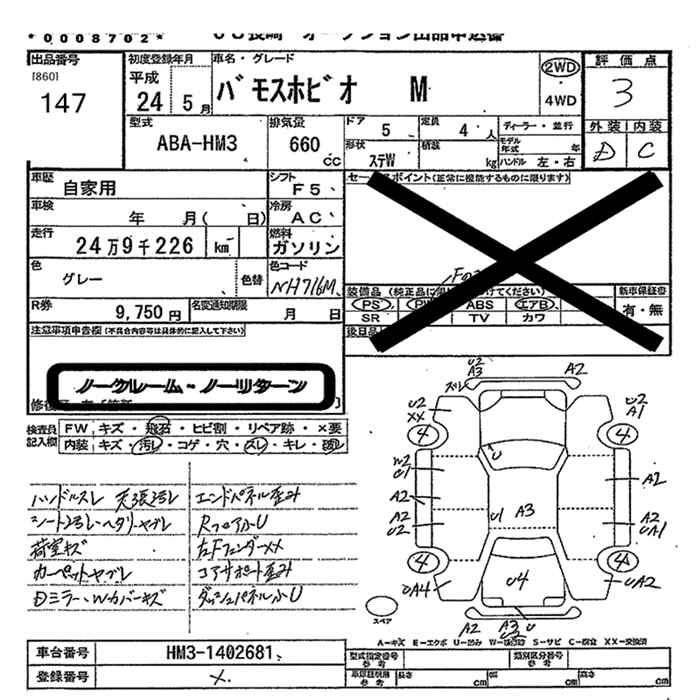 *0008702*
出品番号
[860]
147
初度登録年月
平成
24 5月
車名・グレード
バモスホビオ M
2WD
・
4WD
評価点
3
型式
ABA-HM3
排気量
660
CC
ドア 5
定員 4人
ディーラー・並行
形状 ステW
積載 kg
モデル年式 年
ハンドル 左・右
外装 内装
D C
車歴 自家用
シフト F5
セールスポイント(正常に機能するものに限ります)
車検 年 月( 日)
冷房 AC
走行 24万9千226 km
燃料 ガソリン
色 グレー
色替
色コード NH716M
装備品
PS ABS エアB
SR TV カワ
新車保証書
有・無
R券 9,750円
名変通知期限 月 日
後日品
注意事項申告欄(不具合内容等は具体的に記入して下さい)
ノークレーム・ノーリターン
検査員記入欄
FW キズ・飛石・ヒビ割・リペア跡・×要
内装 キズ・汚レ・コゲ・穴・スレ・キレ・
ハンドルスレ 天張汚レ
シート汚レ・ヘタリ・ヤブレ
荷室キズ
カーペットヤブレ
Dミラー・Wカバーキズ
エンドパネル歪み
RフロアふU
左Fフェンダー××
コアサポート歪み
ダッシュパネルふU
U2
A3
A2
スレ
U2
XX
U2
A1
4
4
W2
U1
A2
A2
U2
U
U1
A3
A1
A2
UA1
4
4
UA4
U4
UA2
A2
A3
U2
U
スペア
A-キズ E-エクボ U-凹み W-波打ち S-サビ C-腐食 XX-交換済
車台番号 HM3-1402681
登録番号 ×
型式指定番号
参考
類別区分番号
参考
車庫証明用
参考
長さ cm
幅 cm
高さ cm